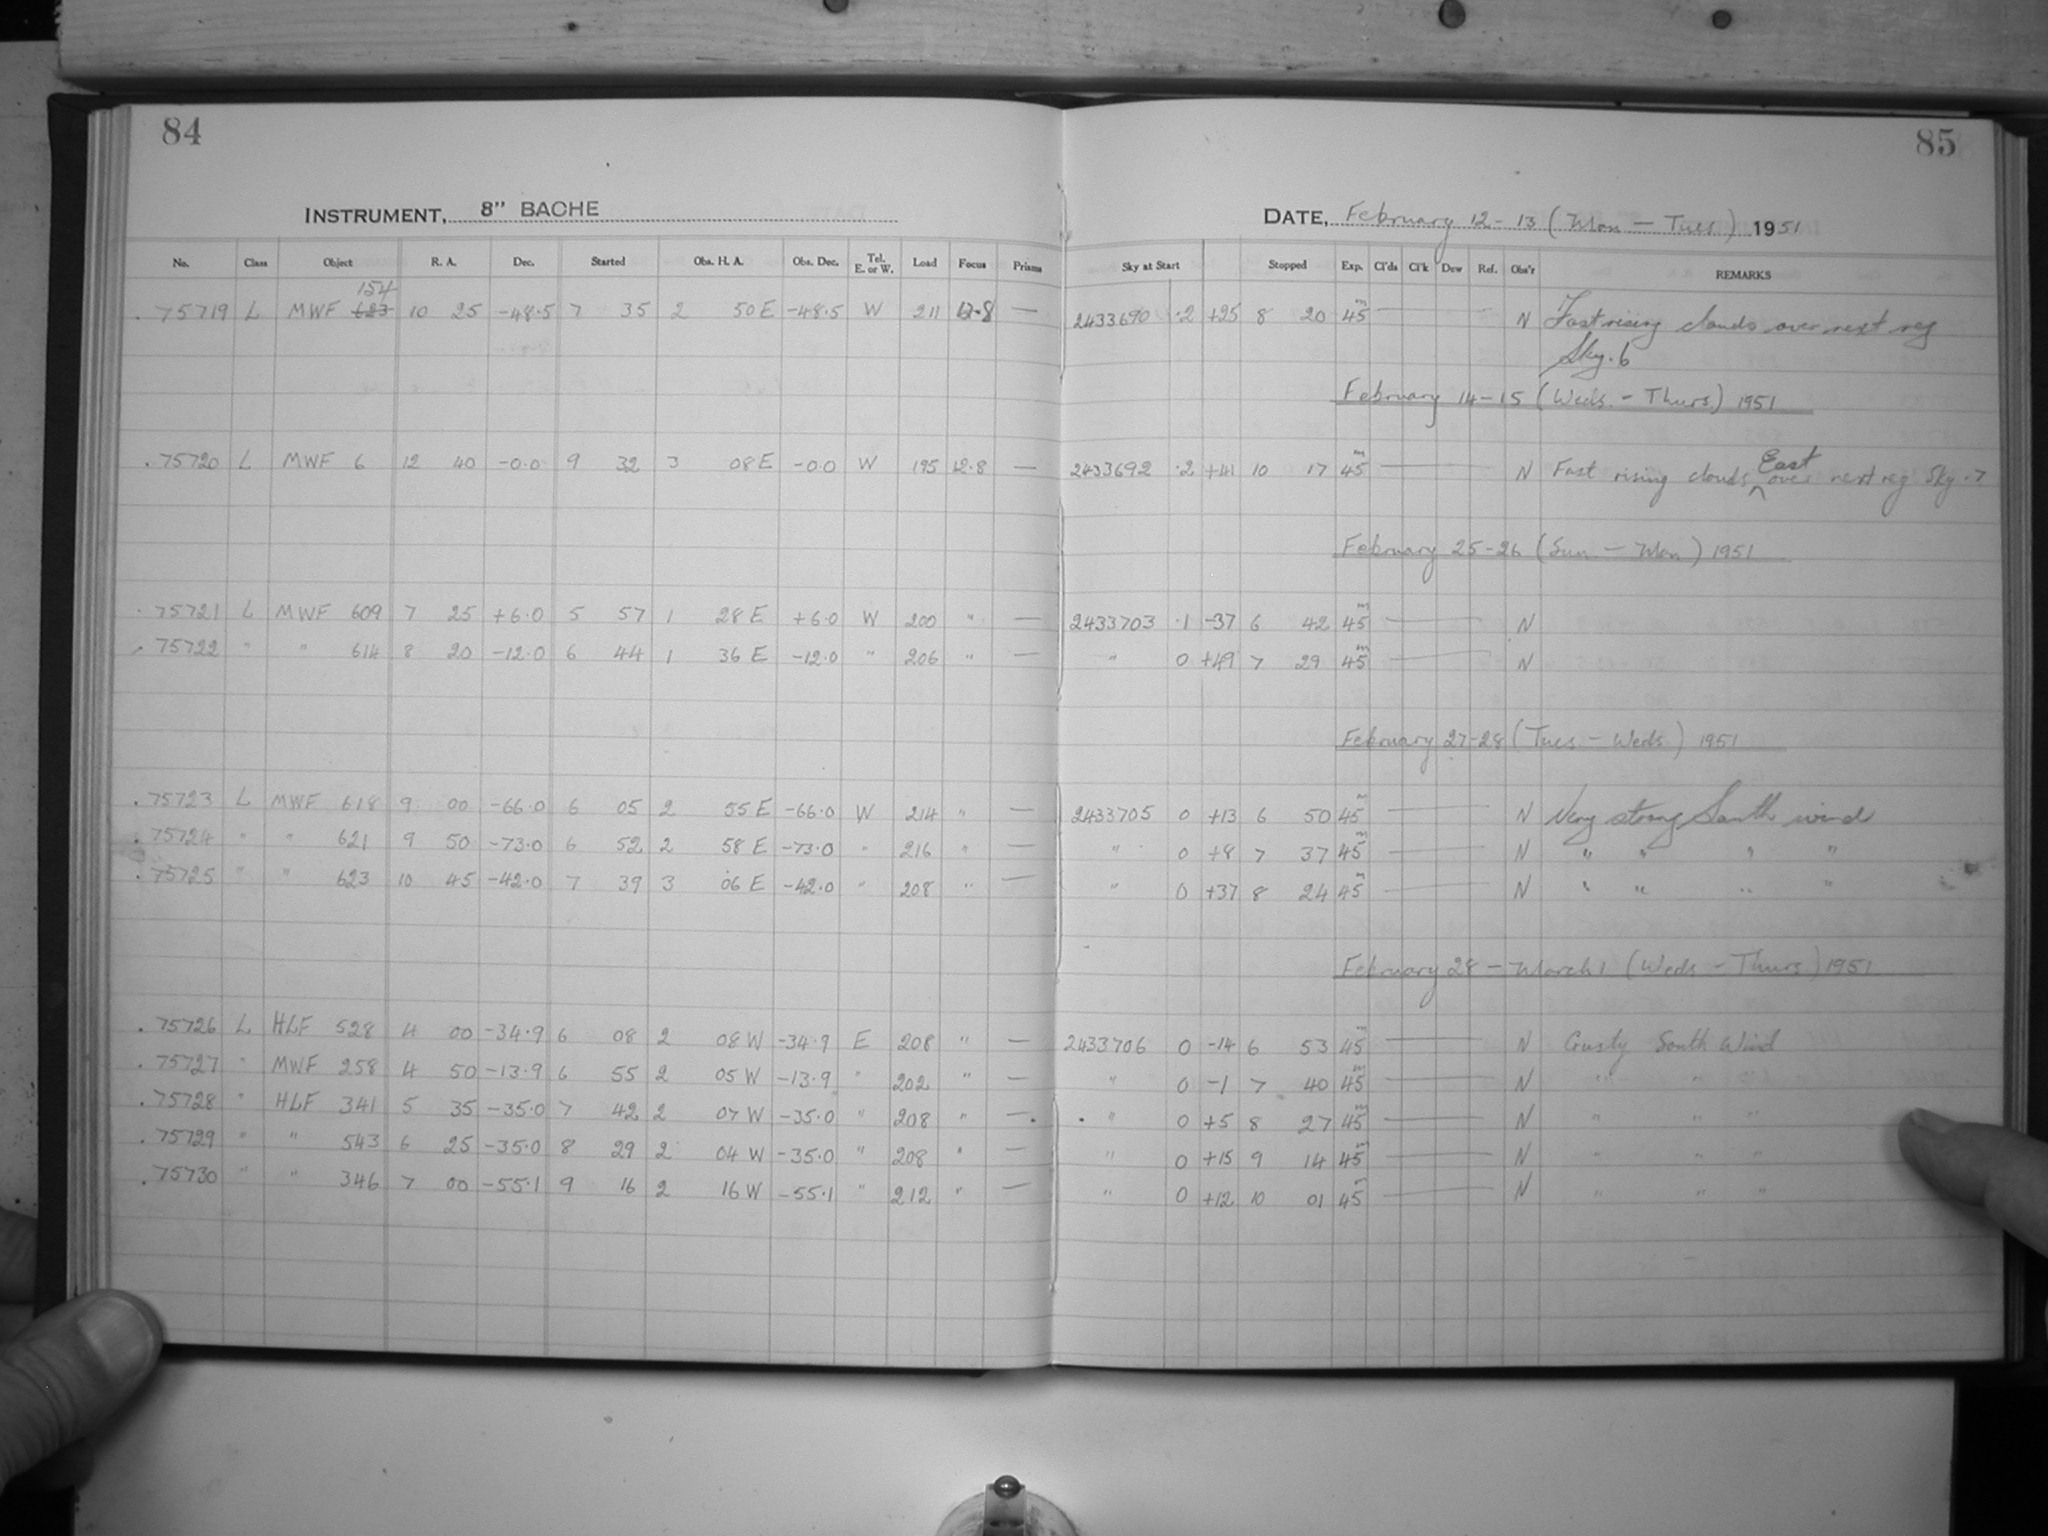 84
85
INSTRUMENT, 8" BACHE
DATE, February 12-13 (Mon - Tues) 1951
No. Class Object R. A. Dec. Started Obs. H. A. Obs. Dec. Tel. E. or W. Load Focus Prisms Sky at Start Stopped Exp. Cl'ds Cl'k Dew Ref. Obs'r REMARKS
154
.75719 L MWF 623 10 25 -48.5 7 35 2 50 E -48.5 W 211 12.8 — 2433690 .2 +25 8 20 45m — N Fast rising clouds over next reg
Sky .6
February 14-15 (Weds. - Thurs) 1951
.75720 L MWF 6 12 40 -0.0 9 32 3 08 E -0.0 W 195 12.8 — 2433692 .2 +41 10 17 45m — N Fast rising clouds East over next reg Sky .7
February 25-26 (Sun - Mon) 1951
.75721 L MWF 609 7 25 +6.0 5 57 1 28 E +6.0 W 200 " — 2433703 .1 -37 6 42 45m — N
.75722 " " 614 8 20 -12.0 6 44 1 36 E -12.0 " 206 " — " 0 +49 7 29 45m — N
February 27-28 (Tues - Weds) 1951
.75723 L MWF 618 9 00 -66.0 6 05 2 55 E -66.0 W 214 " — 2433705 0 +13 6 50 45m — N Very strong South wind
.75724 " " 621 9 50 -73.0 6 52 2 58 E -73.0 " 216 " — " 0 +8 7 37 45m — N " " " "
.75725 " " 623 10 45 -42.0 7 39 3 06 E -42.0 " 208 " — " 0 +37 8 24 45m — N " " " "
February 28 - March 1 (Weds - Thurs) 1951
.75726 L HLF 528 4 00 -34.9 6 08 2 08 W -34.9 E 208 " — 2433706 0 -14 6 53 45m — N Gusty South Wind
.75727 " MWF 258 4 50 -13.9 6 55 2 05 W -13.9 " 202 " — " 0 -1 7 40 45m — N " " "
.75728 " HLF 341 5 35 -35.0 7 42 2 07 W -35.0 " 208 " — " 0 +5 8 27 45m — N " " "
.75729 " " 543 6 25 -35.0 8 29 2 04 W -35.0 " 208 " — " 0 +15 9 14 45m — N " " "
.75730 " 346 7 00 -55.1 9 16 2 16 W -55.1 " 212 " — " 0 +12 10 01 45m — N " " "